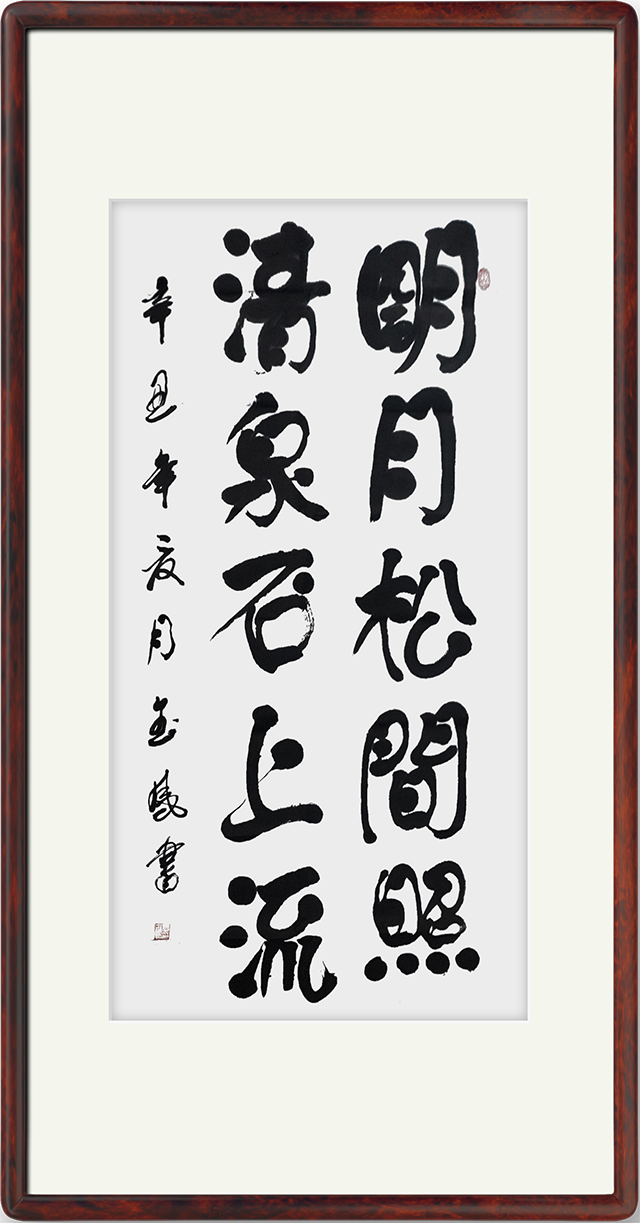 明月松間照
清泉石上流
辛丑年夏月金成書